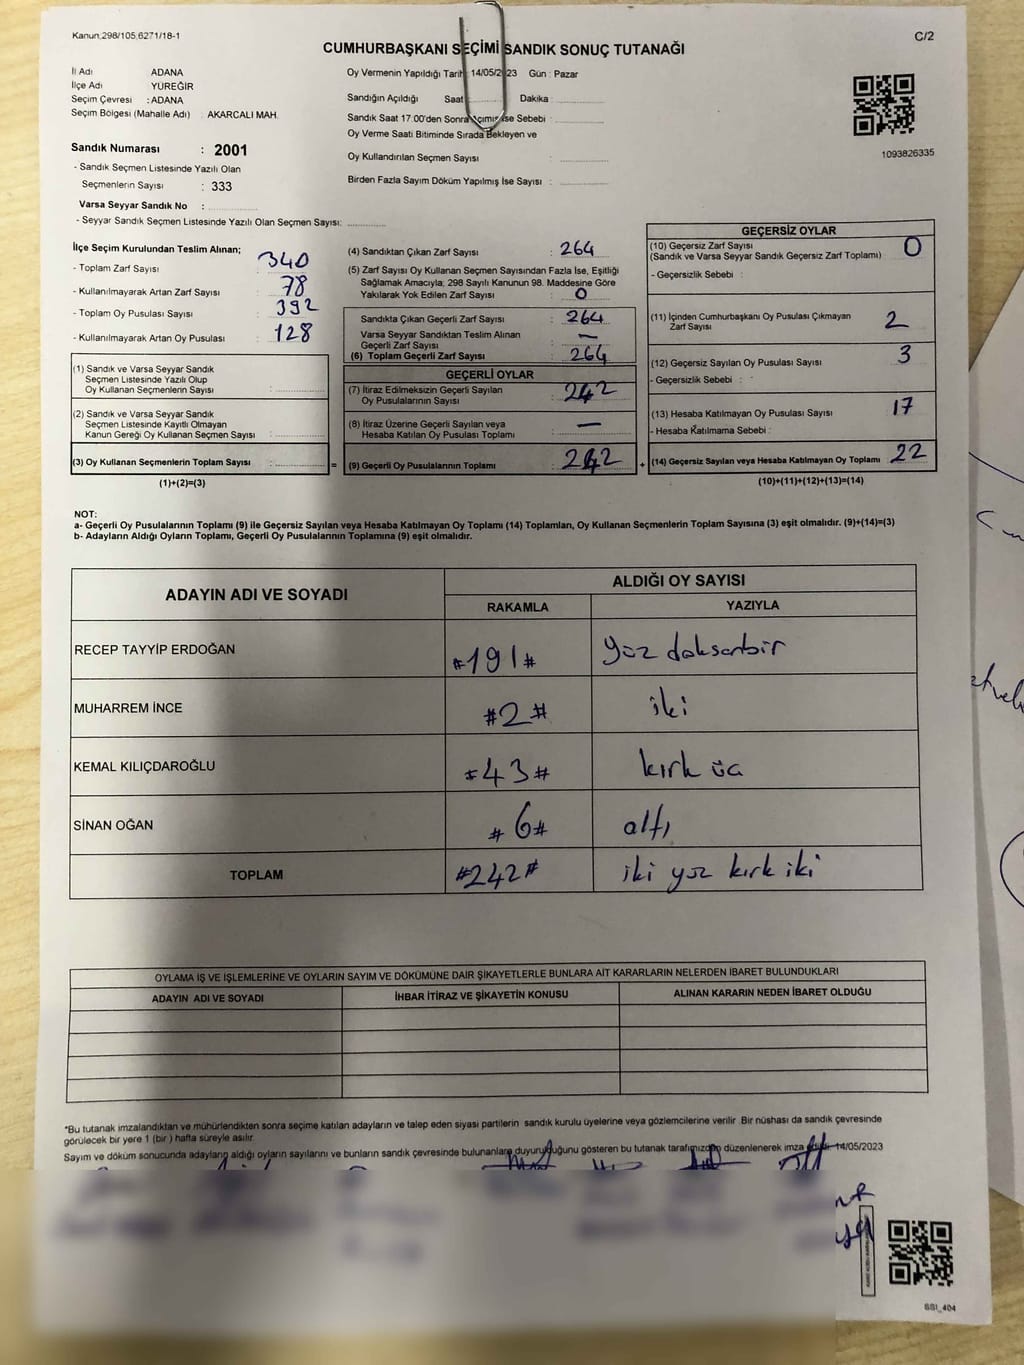 Kanun 298/105,6271/18-1
C/2
CUMHURBAŞKANI SEÇİMİ SANDIK SONUÇ TUTANAĞI
İl Adı ADANA
İlçe Adı YÜREĞİR
Seçim Çevresi : ADANA
Seçim Bölgesi (Mahalle Adı) : AKARCALI MAH.
Oy Vermenin Yapıldığı Tarih 14/05/2023 Gün : Pazar
Sandığın Açıldığı Saat Dakika :
Sandık Saat 17.00'den Sonra Açılmış İse Sebebi :
Oy Verme Saati Bitiminde Sırada Bekleyen ve
Oy Kullandırılan Seçmen Sayısı :
Birden Fazla Sayım Döküm Yapılmış İse Sayısı :
1093826335
Sandık Numarası : 2001
- Sandık Seçmen Listesinde Yazılı Olan
Seçmenlerin Sayısı : 333
Varsa Seyyar Sandık No :
- Seyyar Sandık Seçmen Listesinde Yazılı Olan Seçmen Sayısı:
İlçe Seçim Kurulundan Teslim Alınan;
- Toplam Zarf Sayısı : 340
- Kullanılmayarak Artan Zarf Sayısı : 78
- Toplam Oy Pusulası Sayısı : 392
- Kullanılmayarak Artan Oy Pusulası : 128
(1) Sandık ve Varsa Seyyar Sandık
Seçmen Listesinde Yazılı Olup
Oy Kullanan Seçmenlerin Sayısı :
(2) Sandık ve Varsa Seyyar Sandık
Seçmen Listesinde Kayıtlı Olmayan
Kanun Gereği Oy Kullanan Seçmen Sayısı :
(3) Oy Kullanan Seçmenlerin Toplam Sayısı :
(1)+(2)=(3)
(4) Sandıktan Çıkan Zarf Sayısı : 264
(5) Zarf Sayısı Oy Kullanan Seçmen Sayısından Fazla İse, Eşitliği
Sağlamak Amacıyla; 298 Sayılı Kanunun 98. Maddesine Göre
Yakılarak Yok Edilen Zarf Sayısı : 0
Sandıkta Çıkan Geçerli Zarf Sayısı : 264
Varsa Seyyar Sandıktan Teslim Alınan
Geçerli Zarf Sayısı : —
(6) Toplam Geçerli Zarf Sayısı : 264
GEÇERLİ OYLAR
(7) İtiraz Edilmeksizin Geçerli Sayılan
Oy Pusulalarının Sayısı : 242
(8) İtiraz Üzerine Geçerli Sayılan veya
Hesaba Katılan Oy Pusulası Toplamı : —
= (9) Geçerli Oy Pusulalarının Toplamı : 242 +
GEÇERSİZ OYLAR
(10) Geçersiz Zarf Sayısı
(Sandık ve Varsa Seyyar Sandık Geçersiz Zarf Toplamı) : 0
- Geçersizlik Sebebi :
(11) İçinden Cumhurbaşkanı Oy Pusulası Çıkmayan
Zarf Sayısı : 2
(12) Geçersiz Sayılan Oy Pusulası Sayısı : 3
- Geçersizlik Sebebi :
(13) Hesaba Katılmayan Oy Pusulası Sayısı : 17
- Hesaba Katılmama Sebebi :
(14) Geçersiz Sayılan veya Hesaba Katılmayan Oy Toplamı : 22
(10)+(11)+(12)+(13)=(14)
NOT:
a- Geçerli Oy Pusulalarının Toplamı (9) ile Geçersiz Sayılan veya Hesaba Katılmayan Oy Toplamı (14) Toplamları, Oy Kullanan Seçmenlerin Toplam Sayısına (3) eşit olmalıdır. (9)+(14)=(3)
b- Adayların Aldığı Oyların Toplamı, Geçerli Oy Pusulalarının Toplamına (9) eşit olmalıdır.
ADAYIN ADI VE SOYADI
ALDIĞI OY SAYISI
RAKAMLA YAZIYLA
RECEP TAYYİP ERDOĞAN #191# yüz doksanbir
MUHARREM İNCE #2# iki
KEMAL KILIÇDAROĞLU #43# kırk üç
SİNAN OĞAN #6# altı
TOPLAM #242# iki yüz kırk iki
OYLAMA İŞ VE İŞLEMLERİNE VE OYLARIN SAYIM VE DÖKÜMÜNE DAİR ŞİKAYETLERLE BUNLARA AİT KARARLARIN NELERDEN İBARET BULUNDUKLARI
ADAYIN ADI VE SOYADI İHBAR İTİRAZ VE ŞİKAYETİN KONUSU ALINAN KARARIN NEDEN İBARET OLDUĞU
*Bu tutanak imzalandıktan ve mühürlendikten sonra seçime katılan adayların ve talep eden siyasi partilerin sandık kurulu üyelerine veya gözlemcilerine verilir. Bir nüshası da sandık çevresinde
görülecek bir yere 1 (bir) hafta süreyle asılır.
Sayım ve döküm sonucunda adayların aldığı oyların sayılarını ve bunların sandık çevresinde bulunanlara duyurulduğunu gösteren bu tutanak tarafımızdan düzenlenerek imza edildi. 14/05/2023
SSI_404